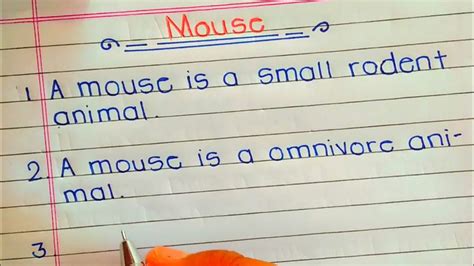 Mouse
1. A mouse is a small rodent
animal.
2. A mouse is a omnivore ani-
mal.
3